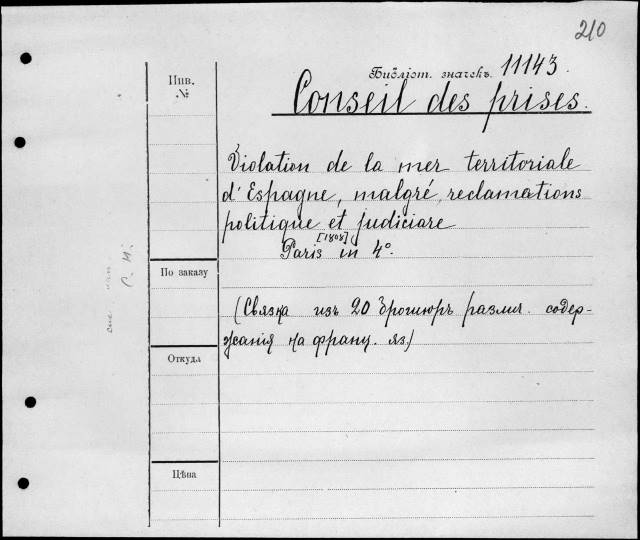 210
Библіот. значекъ. 11143.
Инв.
№
Conseil des prises.
Violation de la mer territoriale
d'Espagne, malgré, reclamations
politique et judiciare
[1808]
Paris in 4°.
По заказу
(Связка изъ 20 брошюръ различ. содер-
жанія на франц. яз.)
Откуда
Цѣна